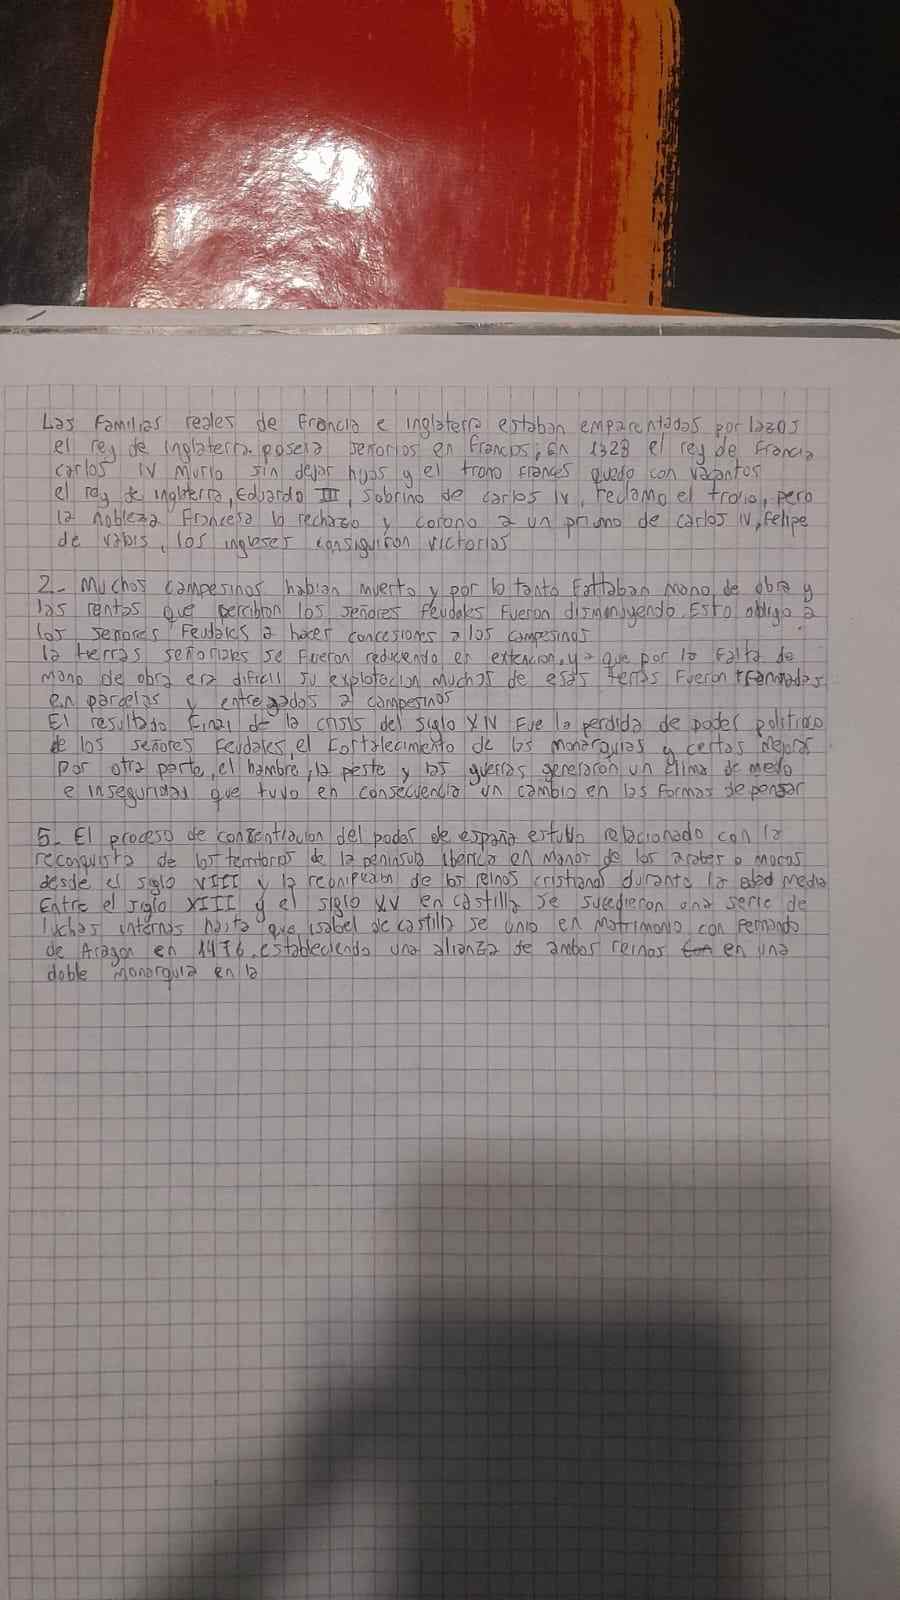 Las familias reales de Francia e inglaterra estaban emparentados por lazos
el rey de inglaterra poseia señorios en francios; En 1328 el rey de francia
carlos IV murio sin dejar hijos y el trono frances quedo con vacantos
el rey de inglaterra, Eduardo III, sobrino de carlos IV, reclamo el trono, pero
la nobleza francesa lo rechazo y corono a un primo de carlos IV, felipe
de valois, los ingleses consiguiron victorias
2- Muchos campesinos habian muerto y por lo tanto faltaban mano de obra y
las rentas que percibian los señores feudales fueron disminuyendo. Esto obligo a
los señores Feudales a hacer concesiones a los campesinos
la tierras señoriales se fueron reduciendo en extencion, ya que por la falta de
mano de obra era dificil su explotacion muchos de esas tierras fueron
en parcelas y entregados a campesinos
El resultado final de la crisis del siglo XIV fue la perdida de poder politico
de los señores feudales, el fortalecimiento de las monarquias y ciertas mejoras
por otra parte, el hambre, la peste y las guerras generaron un clima de miedo
e inseguridad que tuvo en consecuencia un cambio en las formas de pensar
5- El proceso de concentracion del poder de españa estubo relacionado con la
reconquista de los territoros de la peninsula iberica en manos de los arabes o moros
desde el siglo VIII y la reonificacion de los reinos cristianos durante la edad media
Entre el siglo XIII y el siglo XV en castilla se sucedieron una serie de
luchas internas hasta que isabel de castilla se unio en matrimonio con Fernando
de Aragon en 1476, estableciendo una alianza de ambos reinos en una
doble monarquia en la